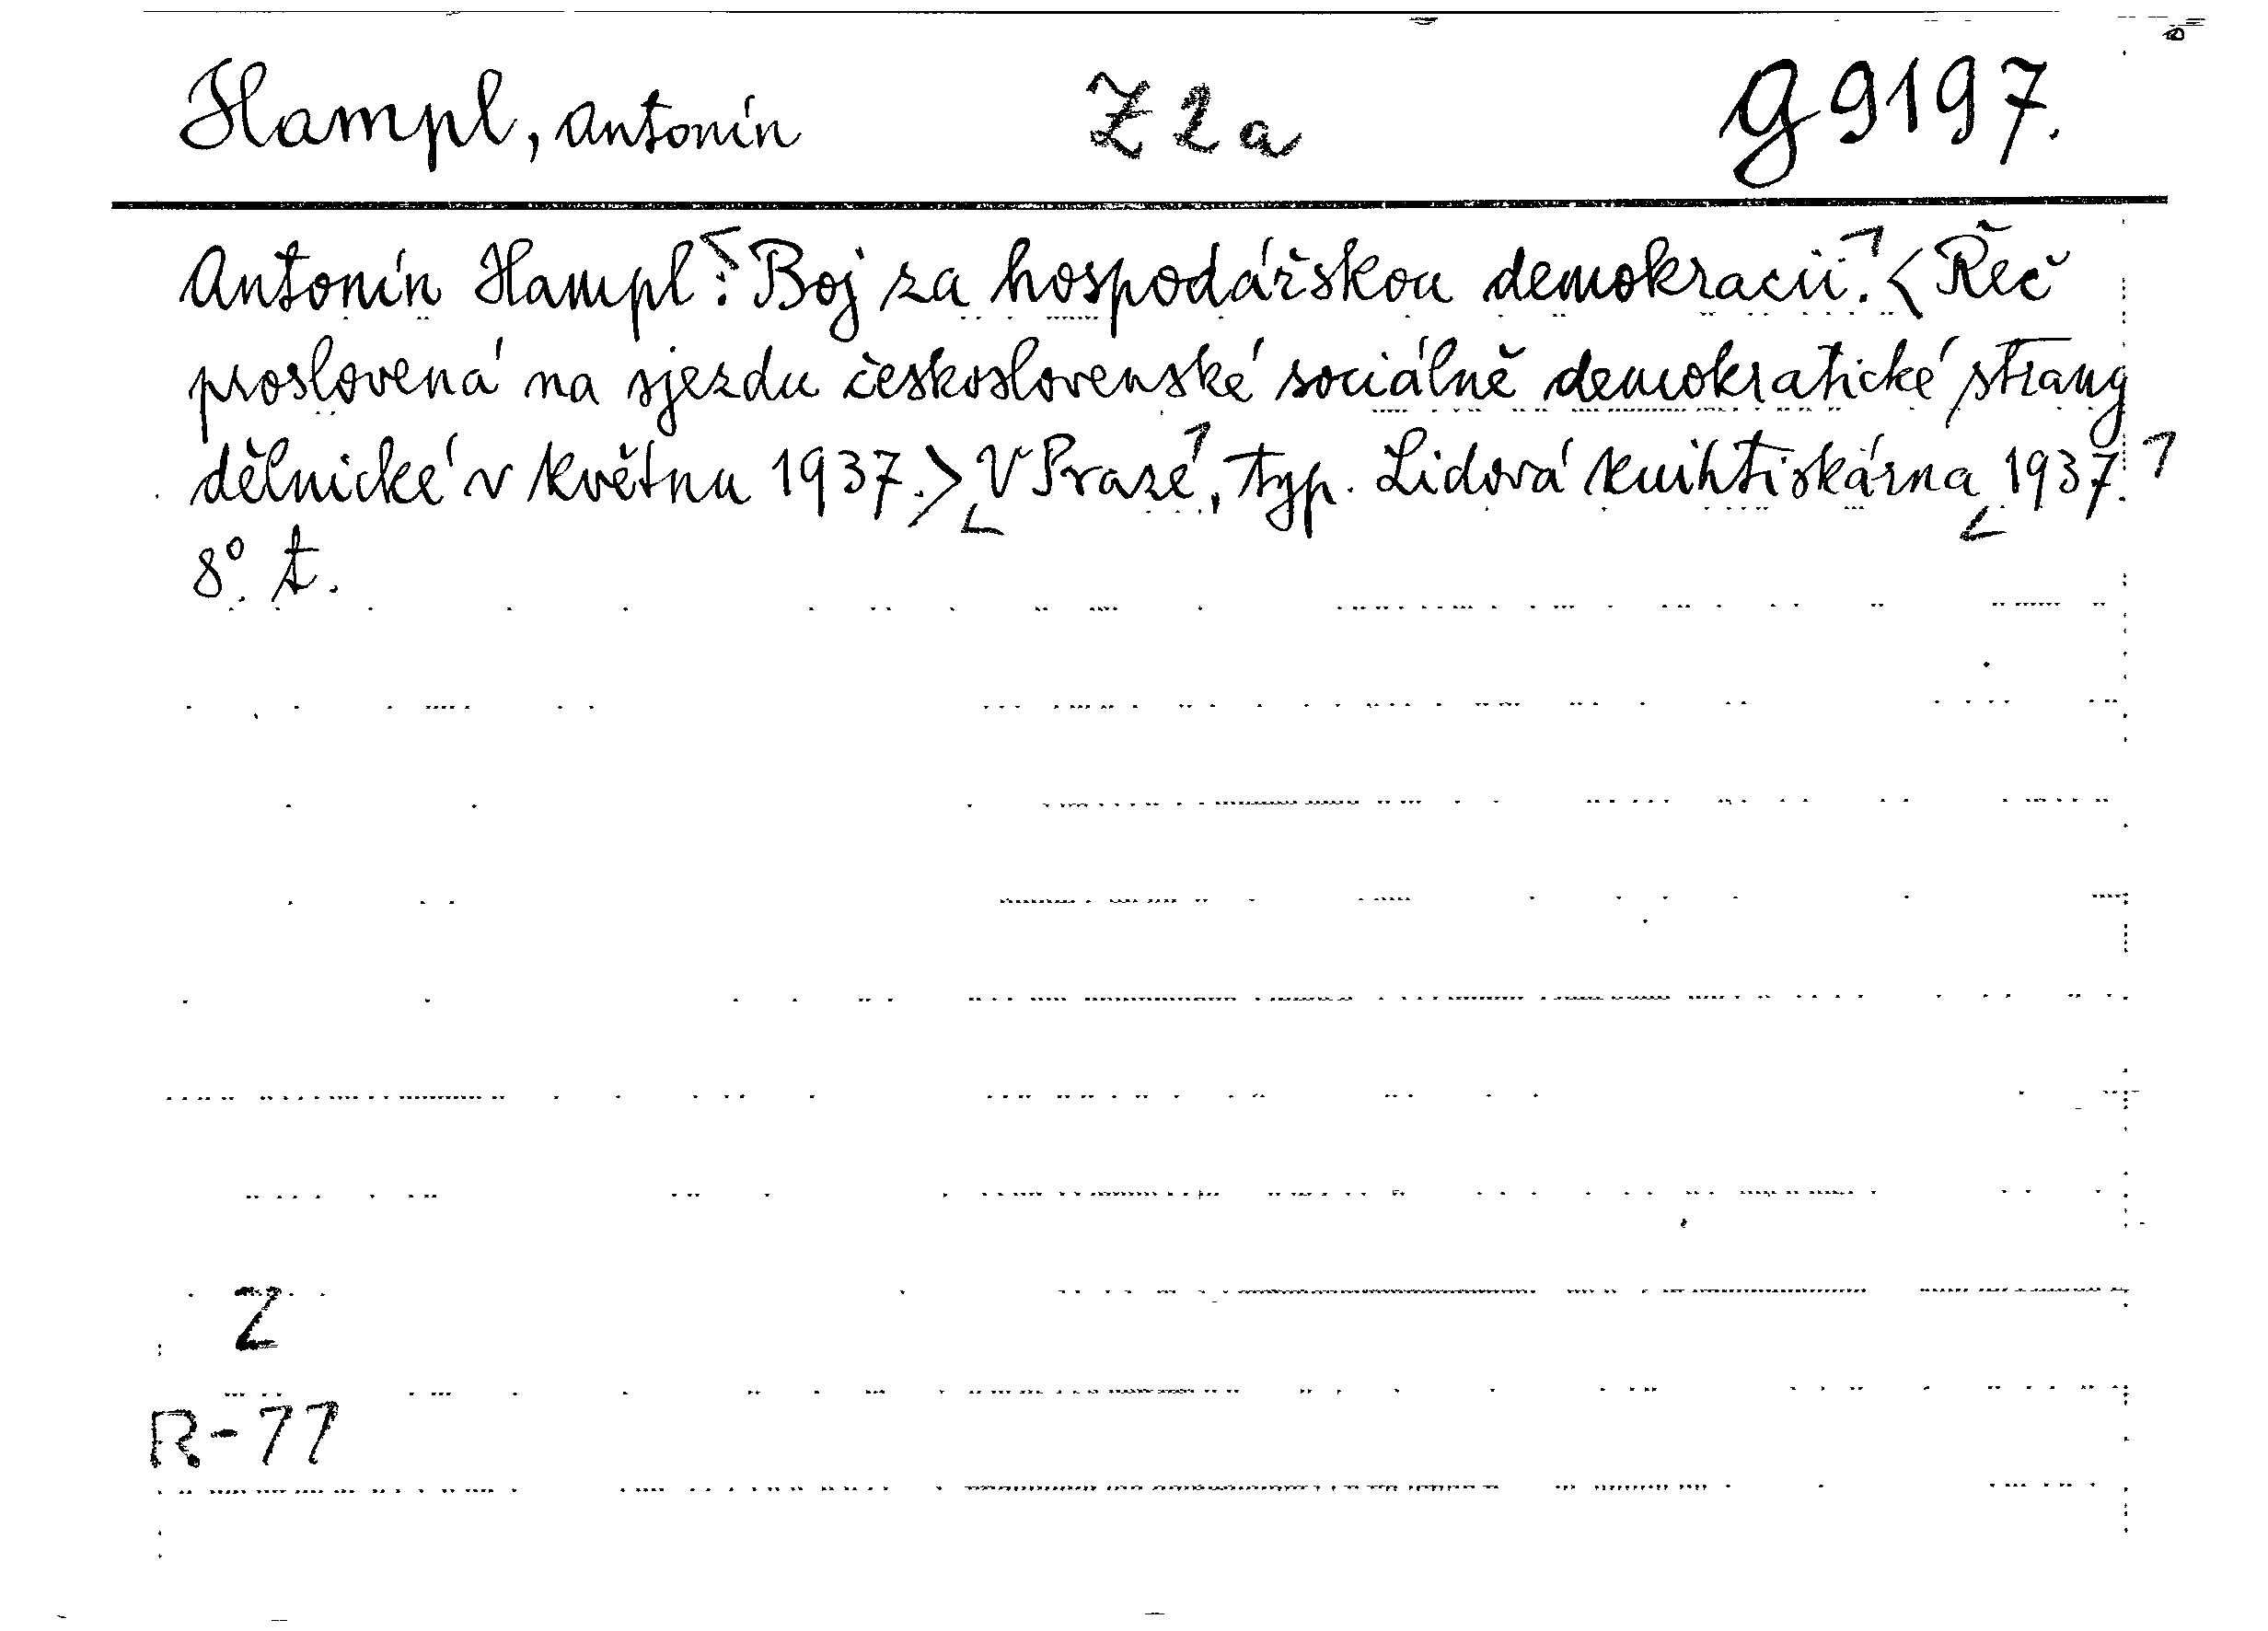 Hampl, Antonín Z 2 a G 9197.
Antonín Hampl: Boj za hospodářskou demokracii. <Řeč
proslovená na sjezdu československé sociálně demokratické strany
dělnické v květnu 1937.> V Praze, typ. Lidová knihtiskárna 1937.
8°. t.
Z
R-77